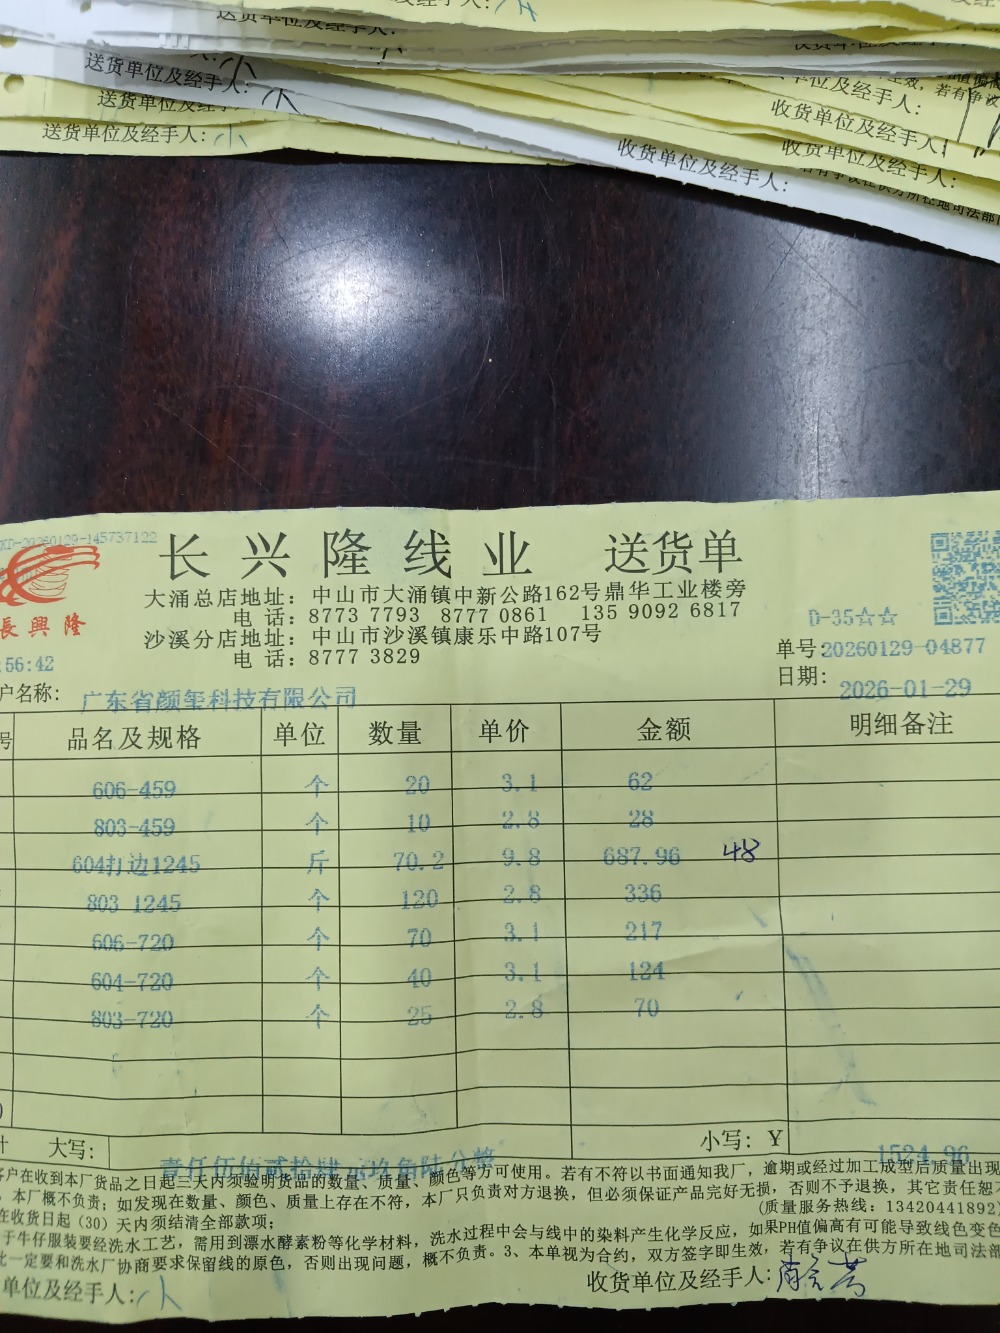 送货单位及经手人:
送货单位及经手人: 小
送货单位及经手人: 小
送货单位及经手人: 小
收货单位及经手人:
收货单位及经手人:
收货单位及经手人:
XD-20260129-145737122
长兴隆线业 送货单
長興隆
大涌总店地址：中山市大涌镇中新公路162号鼎华工业楼旁
电 话：8773 7793 8777 0861 135 9092 6817
沙溪分店地址：中山市沙溪镇康乐中路107号
电 话：8777 3829
D-35☆☆
:56:42
单号:20260129-04877
日期: 2026-01-29
户名称: 广东省颜玺科技有限公司
号 品名及规格 单位 数量 单价 金额 明细备注
606-459 个 20 3.1 62
803-459 个 10 2.8 28
604打边1245 斤 70.2 9.8 687.96 48
803 1245 个 120 2.8 336
606-720 个 70 3.1 217
604-720 个 40 3.1 124
803-720 个 25 2.8 70
计 大写: 壹仟伍佰贰拾肆元玖角陆分整 小写: ￥ 1524.96
客户在收到本厂货品之日起三天内须验明货品的数量、质量、颜色等方可使用。若有不符以书面通知我厂，逾期或经过加工成型后质量出现
，本厂概不负责；如发现在数量、颜色、质量上存在不符，本厂只负责对方退换，但必须保证产品完好无损，否则不予退换，其它责任恕不
在收货日起（30）天内须结清全部款项； (质量服务热线：13420441892)
于牛仔服装要经洗水工艺，需用到漂水酵素粉等化学材料，洗水过程中会与线中的染料产生化学反应，如果PH值偏高有可能导致线色变色
此一定要和洗水厂协商要求保留线的原色，否则出现问题，概不负责。3、本单视为合约，双方签字即生效，若有争议在供方所在地司法部
单位及经手人: 小
收货单位及经手人: